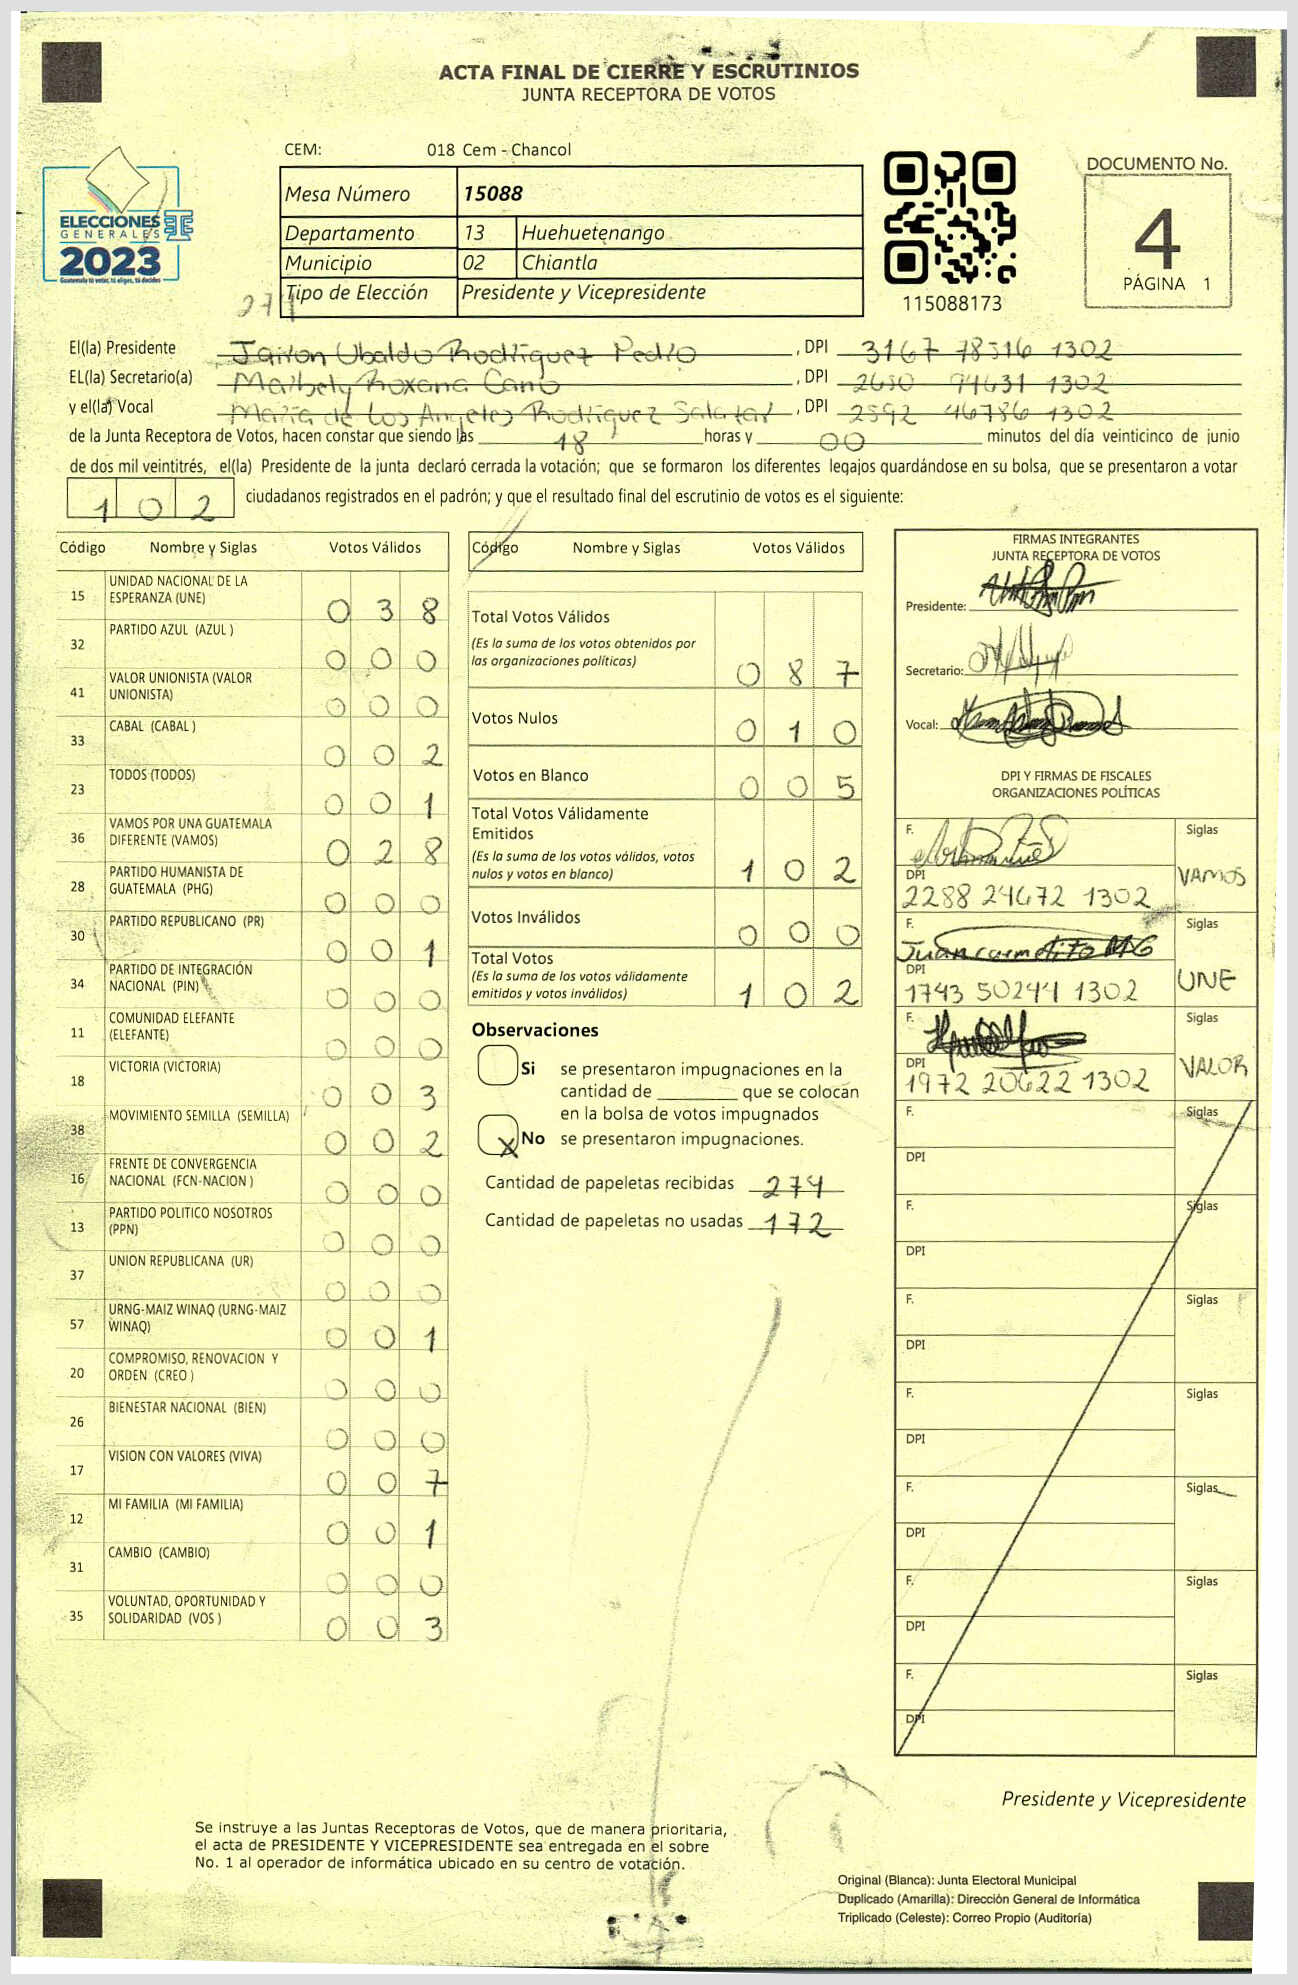 ACTA FINAL DE CIERRE Y ESCRUTINIOS
JUNTA RECEPTORA DE VOTOS
CEM: 018 Cem - Chancol
DOCUMENTO No.
4
PÁGINA 1
ELECCIONES
GENERALES
2023
Guatemala tú votas, tú eliges, tú decides
Mesa Número 15088
Departamento 13 Huehuetenango
Municipio 02 Chiantla
Tipo de Elección Presidente y Vicepresidente
115088173
El(la) Presidente Jairon Ubaldo Rodríguez Pedro, DPI 3167 78316 1302
EL(la) Secretario(a) Maibely Roxana Cano, DPI 2650 94631 1302
y el(la) Vocal María de Los Angeles Rodríguez Salazar, DPI 2592 46786 1302
de la Junta Receptora de Votos, hacen constar que siendo las 18 horas y 00 minutos del día veinticinco de junio
de dos mil veintitrés, el(la) Presidente de la junta declaró cerrada la votación; que se formaron los diferentes legajos guardándose en su bolsa, que se presentaron a votar
102 ciudadanos registrados en el padrón; y que el resultado final del escrutinio de votos es el siguiente:
Código Nombre y Siglas Votos Válidos
15 UNIDAD NACIONAL DE LA ESPERANZA (UNE) 038
32 PARTIDO AZUL (AZUL ) 000
41 VALOR UNIONISTA (VALOR UNIONISTA) 000
33 CABAL (CABAL ) 002
23 TODOS (TODOS) 001
36 VAMOS POR UNA GUATEMALA DIFERENTE (VAMOS) 028
28 PARTIDO HUMANISTA DE GUATEMALA (PHG) 000
30 PARTIDO REPUBLICANO (PR) 001
34 PARTIDO DE INTEGRACIÓN NACIONAL (PIN) 000
11 COMUNIDAD ELEFANTE (ELEFANTE) 000
18 VICTORIA (VICTORIA) 003
38 MOVIMIENTO SEMILLA (SEMILLA) 002
16 FRENTE DE CONVERGENCIA NACIONAL (FCN-NACION ) 000
13 PARTIDO POLITICO NOSOTROS (PPN) 000
37 UNION REPUBLICANA (UR) 000
57 URNG-MAIZ WINAQ (URNG-MAIZ WINAQ) 001
20 COMPROMISO, RENOVACION Y ORDEN (CREO ) 000
26 BIENESTAR NACIONAL (BIEN) 000
17 VISION CON VALORES (VIVA) 007
12 MI FAMILIA (MI FAMILIA) 001
31 CAMBIO (CAMBIO) 000
35 VOLUNTAD, OPORTUNIDAD Y SOLIDARIDAD (VOS ) 003
Código Nombre y Siglas Votos Válidos
Total Votos Válidos 087
(Es la suma de los votos obtenidos por
las organizaciones políticas)
Votos Nulos 010
Votos en Blanco 005
Total Votos Válidamente
Emitidos 102
(Es la suma de los votos válidos, votos
nulos y votos en blanco)
Votos Inválidos 000
Total Votos 102
(Es la suma de los votos válidamente
emitidos y votos inválidos)
Observaciones
Si se presentaron impugnaciones en la
cantidad de ________ que se colocan
en la bolsa de votos impugnados
X No se presentaron impugnaciones.
Cantidad de papeletas recibidas 274
Cantidad de papeletas no usadas 172
FIRMAS INTEGRANTES
JUNTA RECEPTORA DE VOTOS
Presidente:
Secretario:
Vocal:
DPI Y FIRMAS DE FISCALES
ORGANIZACIONES POLÍTICAS
F. Siglas
DPI VAMOS
2288 24672 1302
F. Siglas
DPI UNE
1743 50244 1302
F. Siglas
DPI VALOR
1972 20622 1302
F. Siglas
DPI
F. Siglas
DPI
F. Siglas
DPI
F. Siglas
DPI
F. Siglas
DPI
F. Siglas
DPI
F. Siglas
DPI
Presidente y Vicepresidente
Se instruye a las Juntas Receptoras de Votos, que de manera prioritaria,
el acta de PRESIDENTE Y VICEPRESIDENTE sea entregada en el sobre
No. 1 al operador de informática ubicado en su centro de votación.
Original (Blanca): Junta Electoral Municipal
Duplicado (Amarilla): Dirección General de Informática
Triplicado (Celeste): Correo Propio (Auditoría)